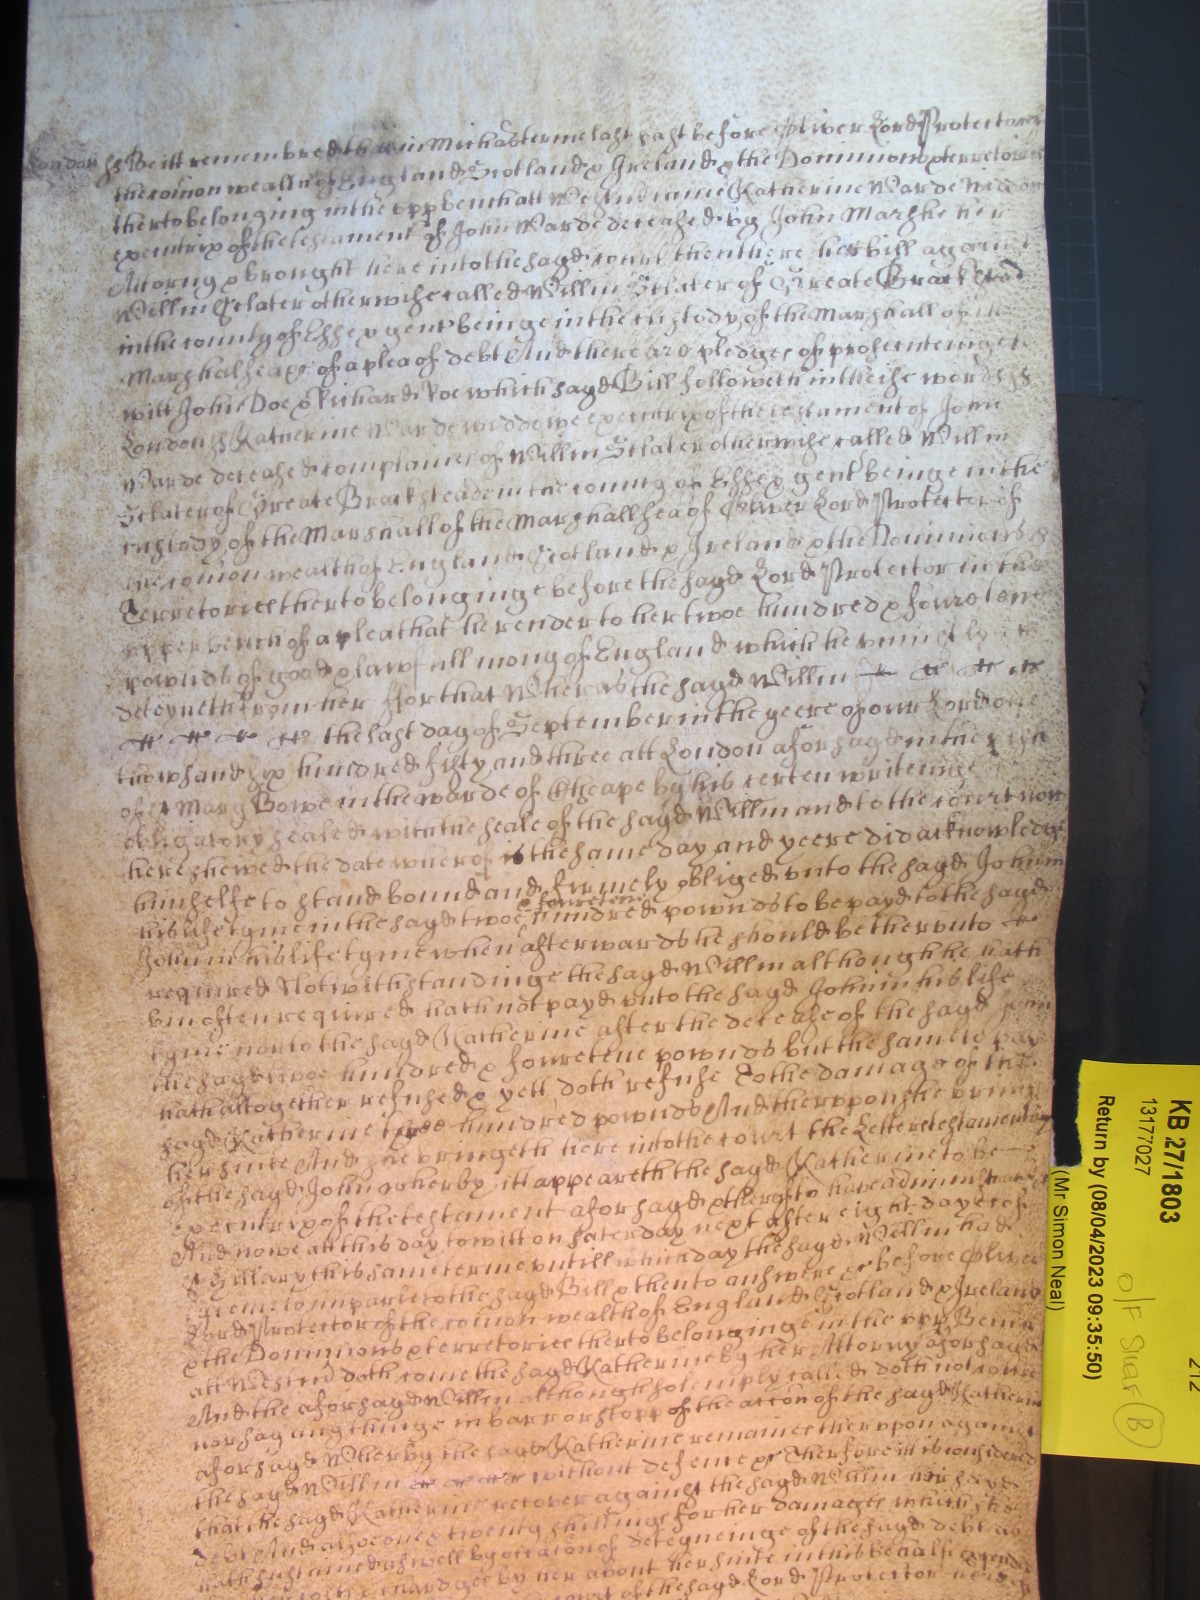 London ss Be itt remembred that in Michas terme last past before Oliver Lord Protector of
the comon wealth of England Scotland & Ireland & the Dominions & terretories
therto belonging in the upp bench att Westm came Katherine Warde Widdow
executrix of the testament of John Warde deceased by John Marshe her
Attorny & brought here into the sayd court then there her bill against
Willm Sclater otherwise called Willm Sclater of Greate Brackstead
in the county of Essex gent beinge in the custody of the Marshall of the
Marshalsea &c of a plea of debt And there are pledges of prosecuteinge to
witt John Doe & Richard Roe which sayd Bill followeth in theise words ss
London ss Katherine Warde widdowe executrix of the testament of John
Warde deceased complaines of Willm Sclater otherwise called Willm
Sclater of Greate Brackstead in the county of Essex gent beinge in the
custody of the Marshall of the Marshallsea of Oliver Lord Protector of
the comon wealth of England Scotland & Ireland & the Dominions &
Terretories therto belonginge before the sayd Lord Protector in the
upper bench of a plea that he render to her twoe hundred & fouretene
pownds of good & lawfull mony of England which he to her oweth &
deteyneth from her ffor that Wheras the sayd Willm
the last day of September in the yeere of our Lord one
thowsand six hundred fifty and three att London aforsayd in the pish
of St Mary Bowe in the warde of Cheape by his certen writeinge
obligatory sealed with the seale of the sayd Willm and to the court now
here shewed the date wherof is the same day and yeere did acknowledge
himselfe to stand bound and firmely obliged unto the sayd John in
his life tyme in the sayd twoe hundred & fouretene pownds to be payd to the sayd
John in his life tyme when afterwards he should be therunto
required Notwithstandinge the sayd Willm although he hath
bin often required hath not payd unto the sayd John in his life
tyme nor to the sayd Katherine after the decease of the sayd John
the sayd twoe hundred & fouretene pownds but the same to pay
hath altogether refused & yett doth refuse To the damage of the
sayd Katherine hundred pownds And therupon she brings
her suite And she bringeth here into the court the Letters testamentary
of the sayd John wherby itt appeareth the sayd Katherine to be
executrix of the testament aforsayd & therof to have administracon
And nowe att this day to witt on Saterday next after eight dayes of
St Hillary this same terme untill which day the sayd Willm had
leave to imparle to the sayd Bill & then to answere &c before Oliver
Lord Protector of the comon wealth of England Scotland & Ireland
& the Dominions & terretories therto belonginge in the upp Bench
att Westm doth come the sayd Katherine by her Attorny aforsayd
And the aforsayd Willm although solempnly called doth not come
nor say any thinge in barr or stopp of the accon of the sayd Katherine
aforsayd Wherby the sayd Katherine remaines therupon against
the sayd Willm without defence &c Therfore itt is considered
that the sayd Katherine recover against the sayd Willm her sayd
debt And alsoe one & twenty shillings for her damages which she
hath susteined as well by occasion of deteyneinge of the sayd debt as
by her about her suite in this behalfe
of the sayd Lord Protector
KB 27/1803
13177027
Return by (08/04/2023 09:35:50)
(Mr Simon Neal)
212
O/F Shelf B